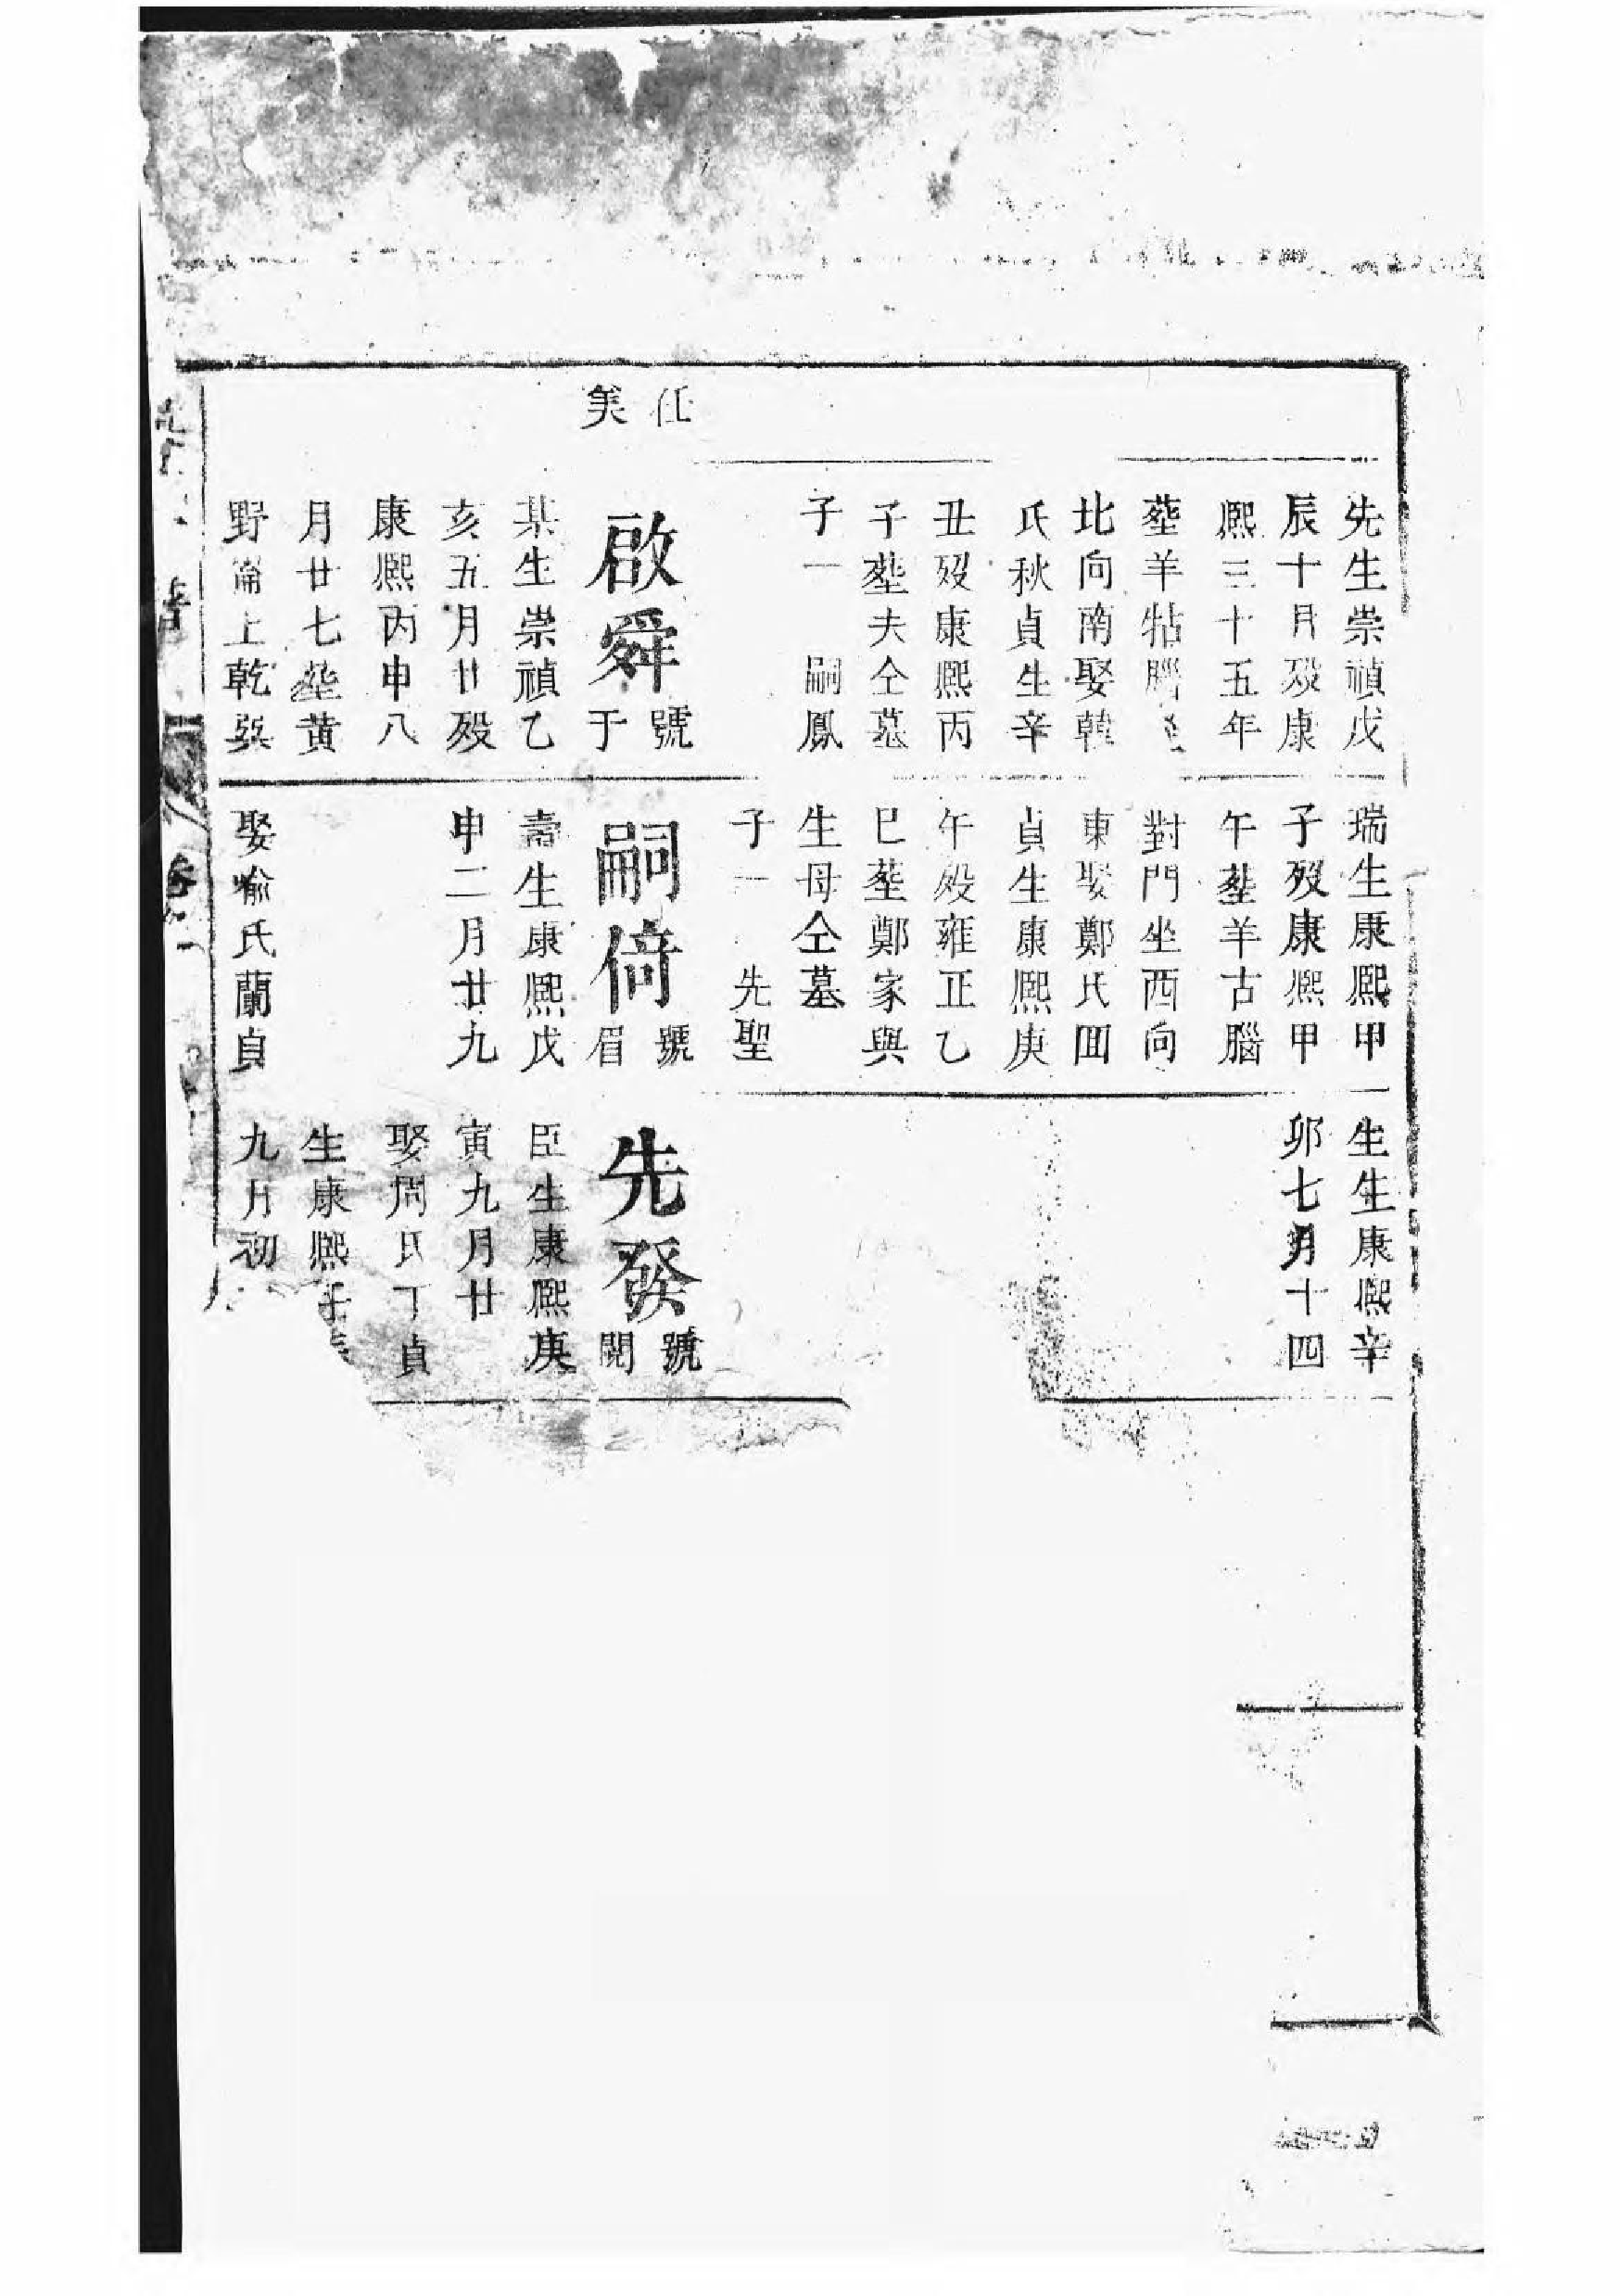 任
美
先生崇禎戊
辰十月殁康
熙三十五年
塟羊牯腦
北向南娶韓
氏秋貞生辛
丑殁康熙丙
子塟夫仝墓
子一　嗣鳳
啟舜號于
某生崇禎乙
亥五月廿殁
康熙丙申八
月廿七塟黄
野崙上乾巽
瑞生康熙甲
子殁康熙甲
午塟羊古腦
對門坐西向
東娶鄭氏囬
貞生康熙庚
午殁雍正乙
巳塟鄭家與
生母仝墓
子一　先聖
嗣倚號眉
壽生康熙戊
申二月廿九
娶喻氏蘭貞
生生康熙辛
卯七月十四
先發號開
臣生康熙庚
寅九月廿
娶周氏丁貞
生康熙壬
九月初